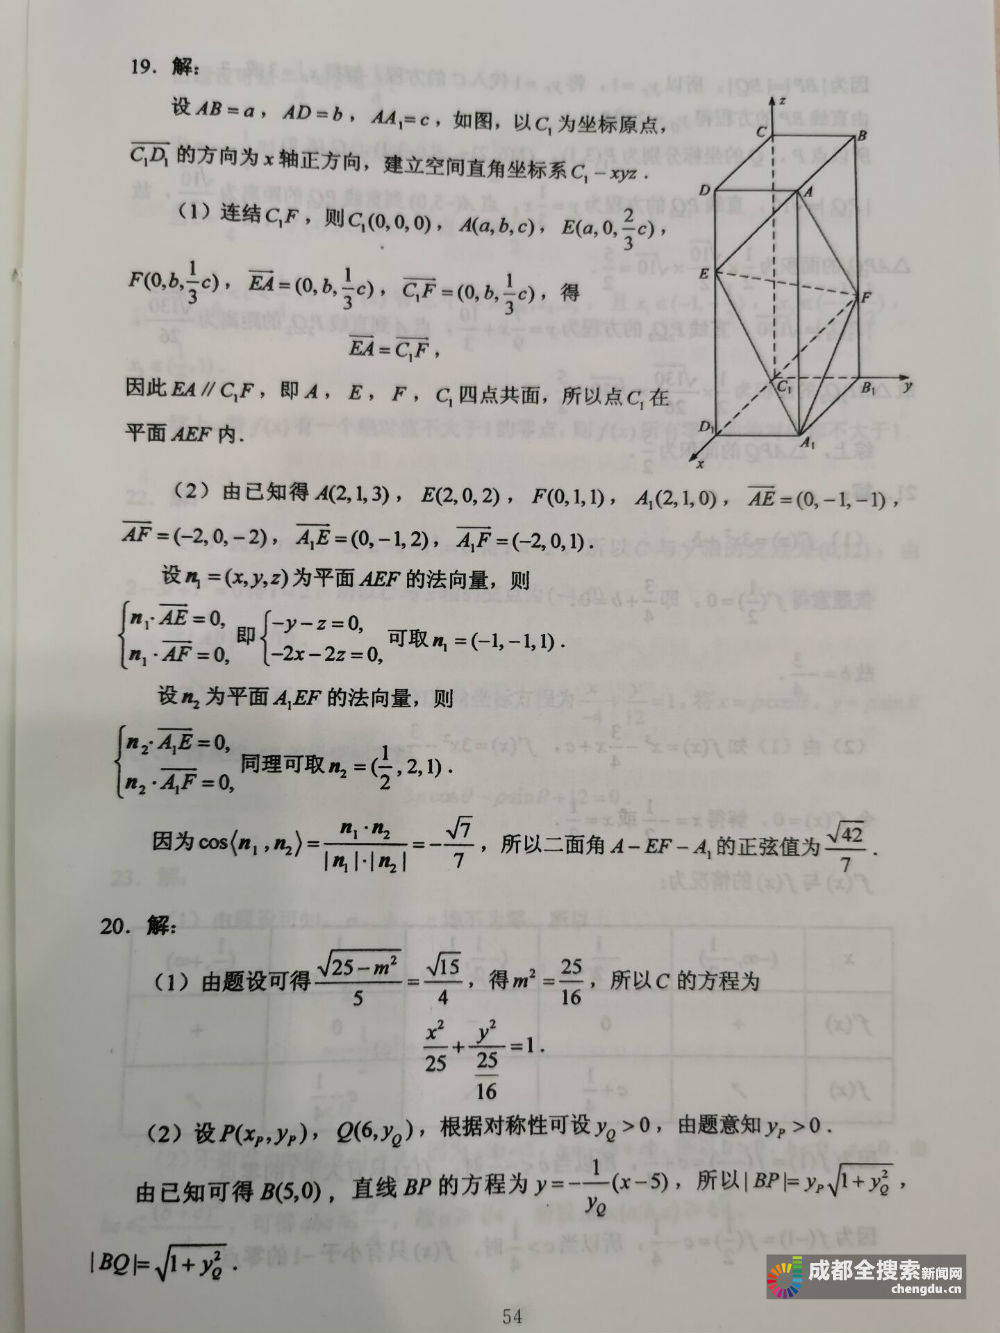 19. 解:
设 AB = a , AD = b , AA₁= c , 如图, 以 C₁ 为坐标原点,
\overline{C₁D₁} 的方向为 x 轴正方向, 建立空间直角坐标系 C₁ - xyz .
(1) 连结 C₁F , 则 C₁(0, 0, 0) , A(a, b, c) , E(a, 0, \frac{2}{3}c) ,
F(0, b, \frac{1}{3}c) , \overline{EA} = (0, b, \frac{1}{3}c) , \overline{C₁F} = (0, b, \frac{1}{3}c) , 得
\overline{EA} = \overline{C₁F} ,
因此 EA // C₁F , 即 A , E , F , C₁ 四点共面, 所以点 C₁ 在
平面 AEF 内.
z
C
B
D
A
E
F
C₁
B₁
y
D₁
A₁
x
(2) 由已知得 A(2, 1, 3) , E(2, 0, 2) , F(0, 1, 1) , A₁(2, 1, 0) , \overline{AE} = (0, -1, -1) ,
\overline{AF} = (-2, 0, -2) , \overline{A₁E} = (0, -1, 2) , \overline{A₁F} = (-2, 0, 1) .
设 n₁ = (x, y, z) 为平面 AEF 的法向量, 则
\begin{cases} n₁ · \overline{AE} = 0, \\ n₁ · \overline{AF} = 0, \end{cases} 即 \begin{cases} -y - z = 0, \\ -2x - 2z = 0, \end{cases} 可取 n₁ = (-1, -1, 1) .
设 n₂ 为平面 A₁EF 的法向量, 则
\begin{cases} n₂ · \overline{A₁E} = 0, \\ n₂ · \overline{A₁F} = 0, \end{cases} 同理可取 n₂ = (\frac{1}{2}, 2, 1) .
因为 cos⟨n₁ , n₂⟩ = \frac{n₁ · n₂}{|n₁|·|n₂|} = -\frac{\sqrt{7}}{7} , 所以二面角 A - EF - A₁ 的正弦值为 \frac{\sqrt{42}}{7} .
20. 解:
(1) 由题设可得 \frac{\sqrt{25 - m²}}{5} = \frac{\sqrt{15}}{4} , 得 m² = \frac{25}{16} , 所以 C 的方程为
\frac{x²}{25} + \frac{y²}{\frac{25}{16}} = 1 .
(2) 设 P(x_P, y_P) , Q(6, y_Q) , 根据对称性可设 y_Q > 0 , 由题意知 y_P > 0 .
由已知可得 B(5, 0) , 直线 BP 的方程为 y = -\frac{1}{y_Q}(x - 5) , 所以 |BP| = y_P\sqrt{1 + y_Q²} ,
|BQ| = \sqrt{1 + y_Q²} .
54
成都全搜索新闻网
chengdu.cn